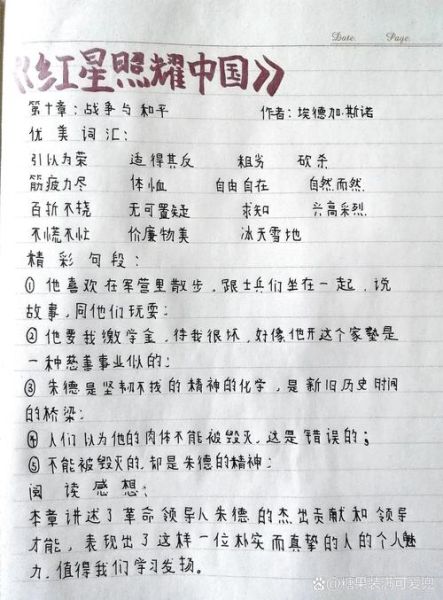 Date. Page.
《红星照耀中国》
第十章:战争与和平 作者:埃德加·斯诺
优美词汇:
引以为荣 适得其反 粗劣 砍杀
筋疲力尽 体恤 自由自在 自然而然
百折不挠 无可置疑 求知 兴高采烈
不慌不忙 价廉物美 冰天雪地
精彩句段:
① 他喜欢在军营里散步,跟士兵们坐在一起,说
故事,同他们玩耍;
② 他要我缴学金,待我很坏,好像他开这个家塾是
一种慈善事业似的;
③ 朱德是坚韧不拔的精神的化学,是新旧历史时间
的桥梁;
④ 人们以为他的肉体不能被毁灭,这是错误的;
⑤ 不能被毁灭的,却是朱德的精神;
阅读感想:
本章讲述了革命领导人朱德的杰出贡献和领导
才能,表现出了这样一位朴实而真挚的人的个人魅
力,值得我们学习发扬。
@糖果装满可爱兜